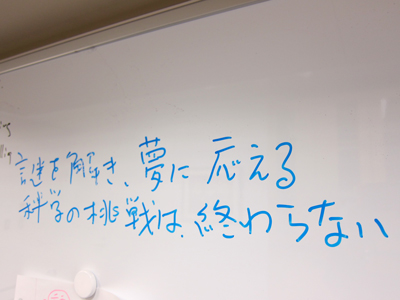 謎を解き、夢に応える
科学の挑戦は、終わらない